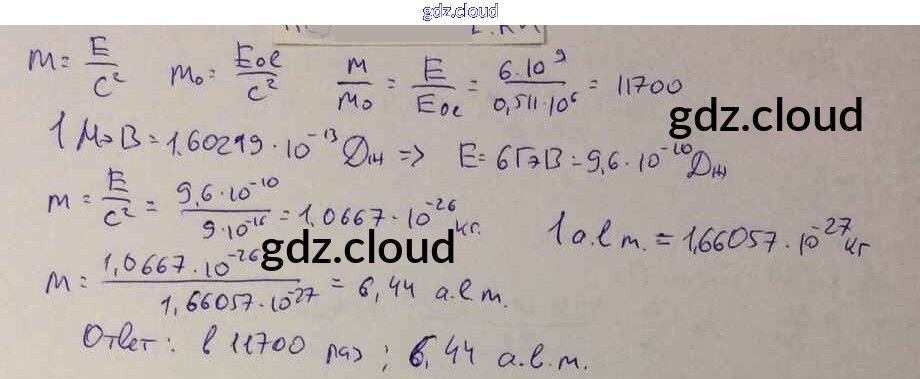 gdz.cloud
m = E/c² m₀ = E₀e/c² m/m₀ = E/E₀e = 6·10⁹/0,511·10⁶ = 11700
gdz.cloud
1 МэВ = 1,60219·10⁻¹³ Дж => E = 6ГэВ = 9,6·10⁻¹⁰ Дж
m = E/c² = 9,6·10⁻¹⁰/9·10⁻¹⁶ = 1,0667·10⁻²⁶ кг. 1 а.е.м. = 1,66057·10⁻²⁷ кг
gdz.cloud
m = 1,0667·10⁻²⁶/1,66057·10⁻²⁷ = 6,44 а.е.м.
Ответ: в 11700 раз; 6,44 а.е.м.